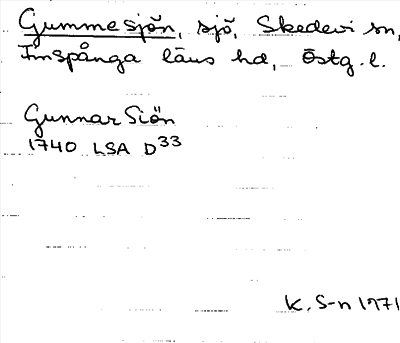 Gummesjön, sjö, Skedevi sn,
Finspånga läns hd, Östg. l.
Gunnar Siön
1740 LSA D33
K. S-n 1971